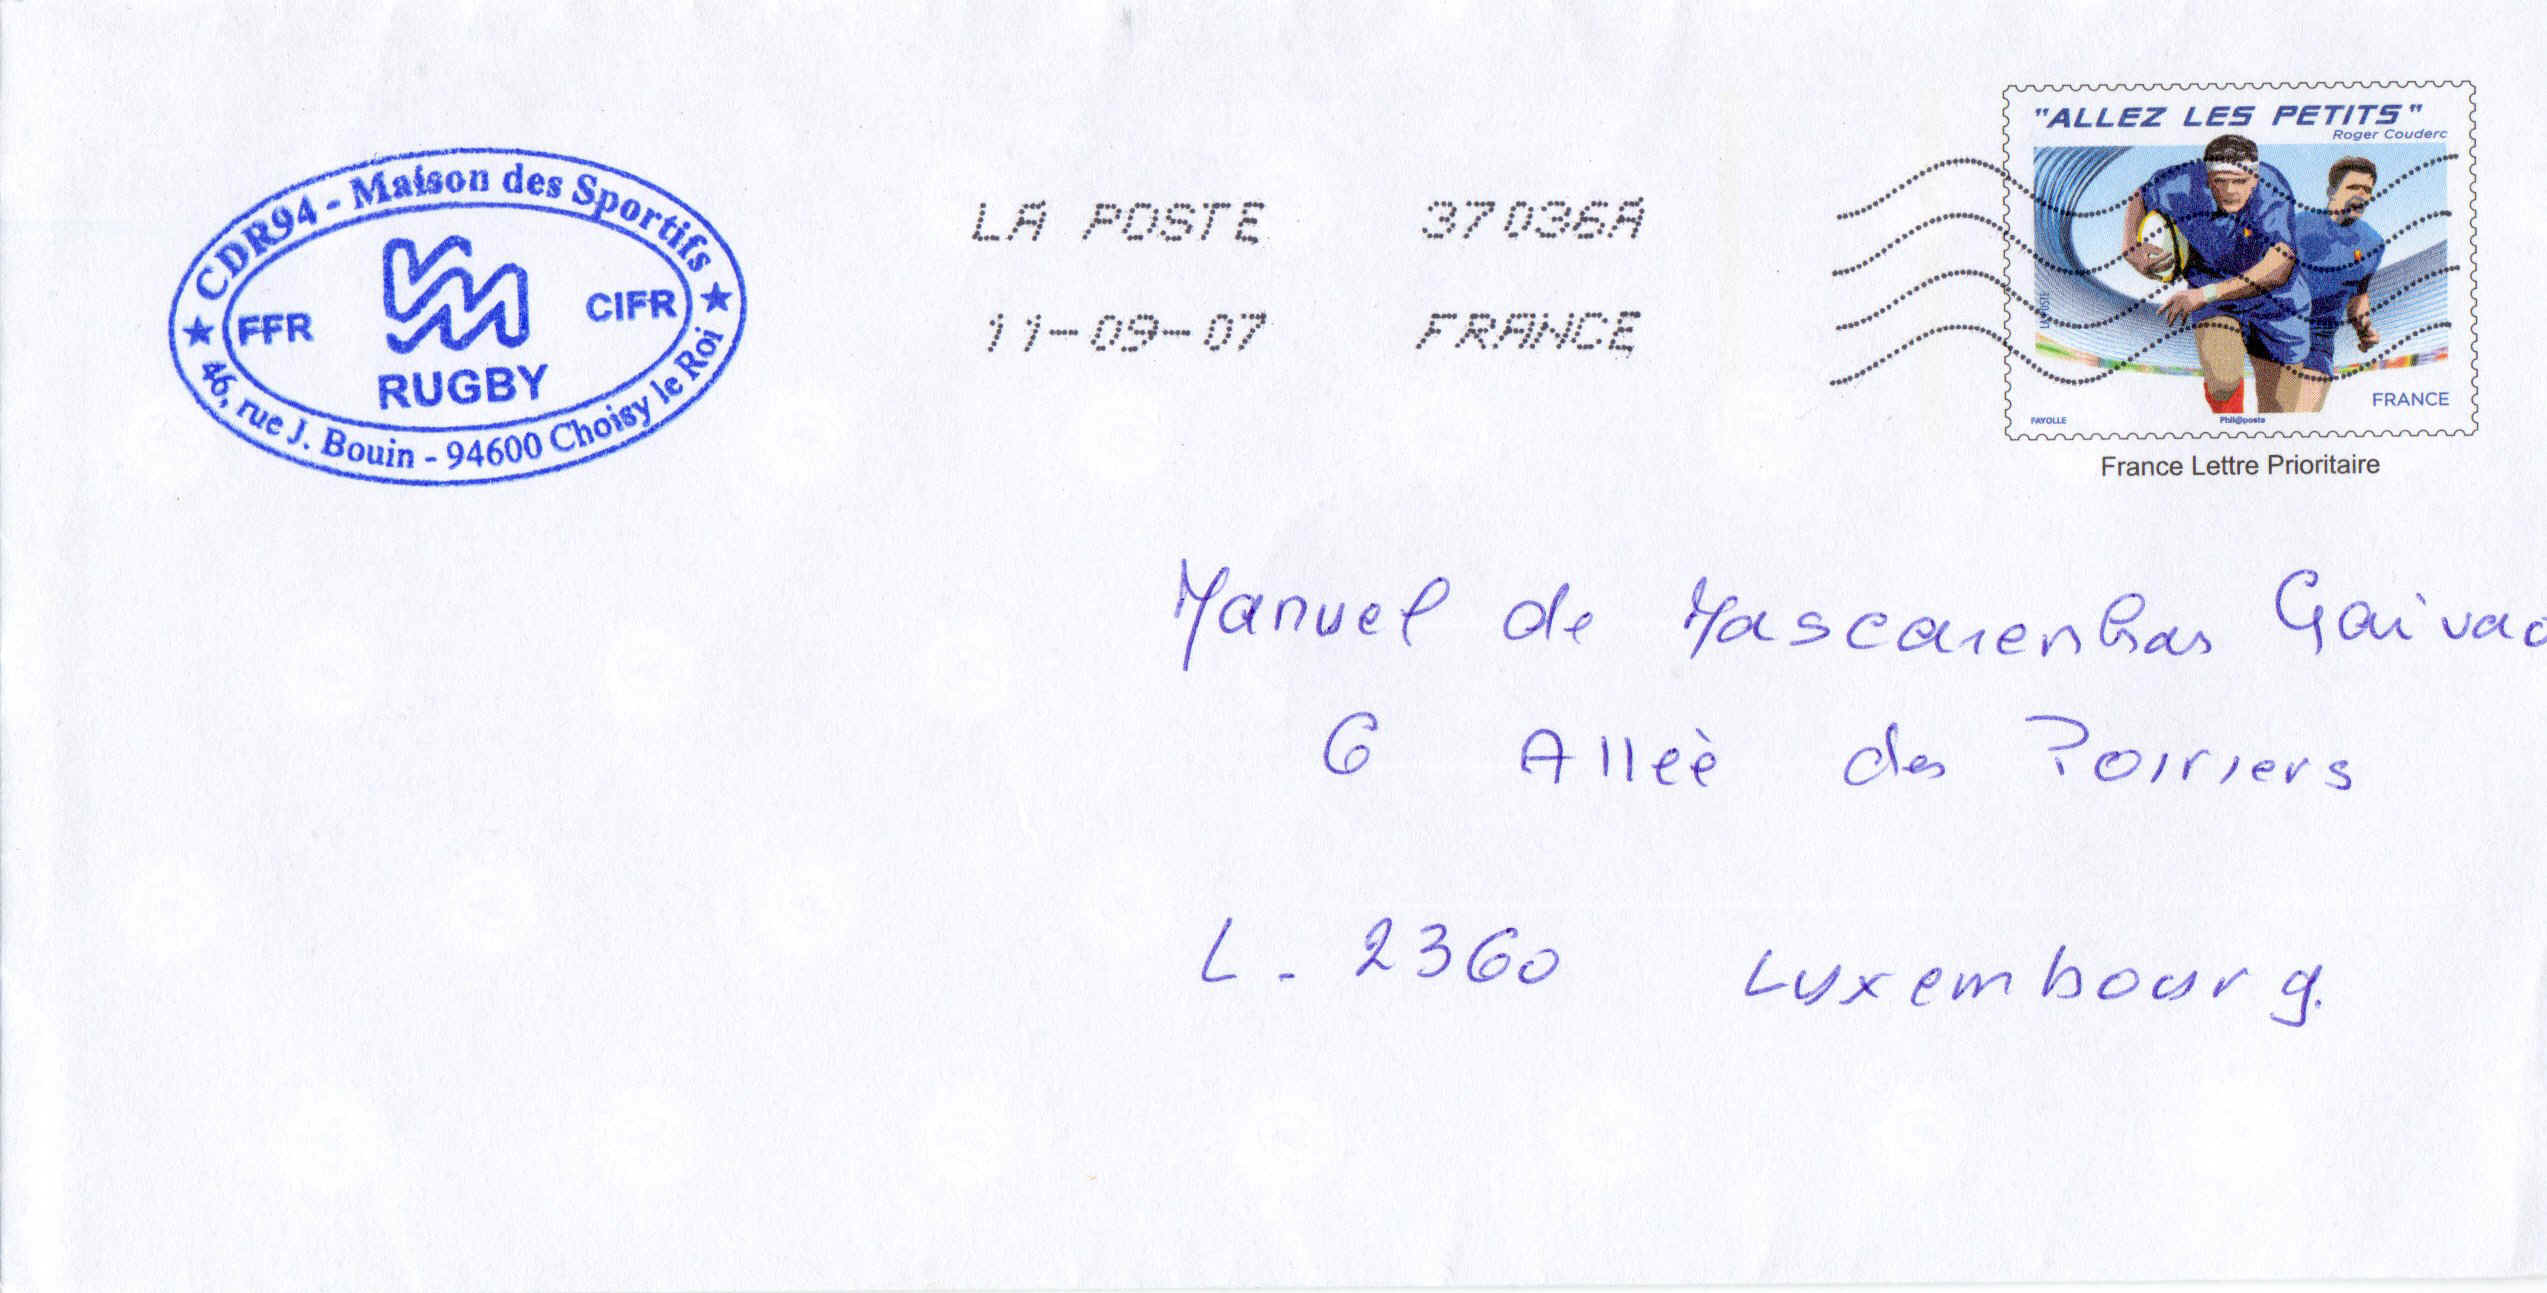 "ALLEZ LES PETITS"
Roger Couderc
CDR94 - Maison des Sportifs
FFR
CIFR
RUGBY
46, rue J. Bouin - 94600 Choisy le Roi
LA POSTE 37036A
11-09-07 FRANCE
LA POSTE
FRANCE
FAYOLLE
Phil@poste
France Lettre Prioritaire
Manuel de Mascarenhas Gaivao
6 Alleè des Poiriers
L - 2360 Luxembourg.